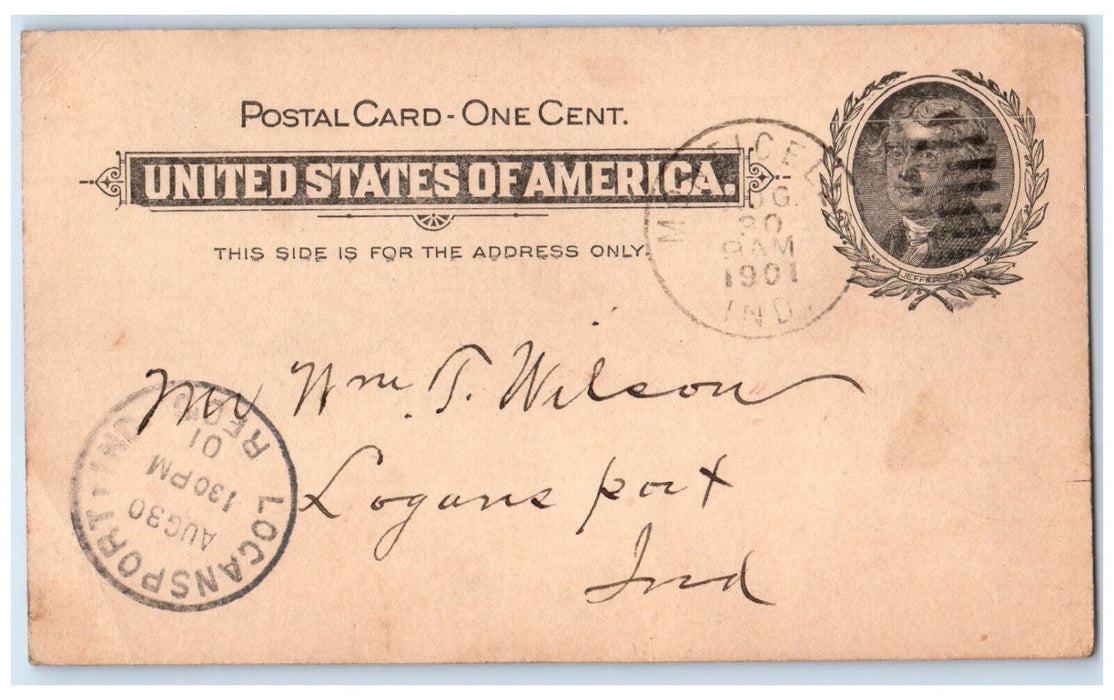 POSTAL CARD - ONE CENT.
UNITED STATES OF AMERICA.
THIS SIDE IS FOR THE ADDRESS ONLY.
JEFFERSON
AUG.
30
9AM
1901
IND.
Mr Wm. T. Wilson
Logansport
Ind
LOGANSPORT, IND.
AUG 30
130PM
01
REC'D